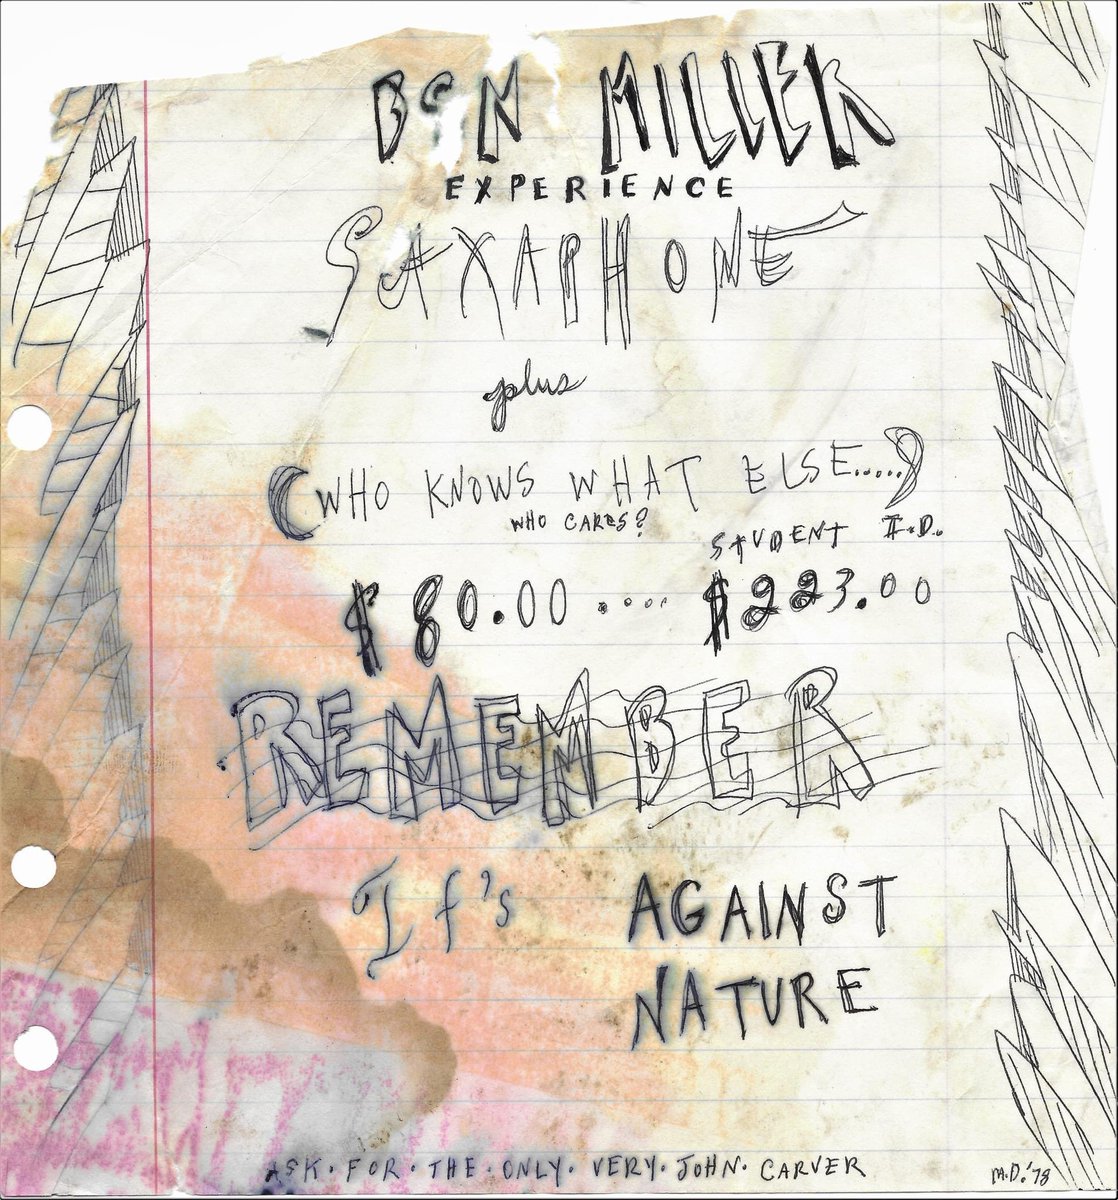 BEN MILLER
EXPERIENCE
SAXAPHONE
plus
(WHO KNOWS WHAT ELSE.....)
WHO CARES?
STUDENT I.D.
$80.00 ..... $223.00
REMEMBER
If's AGAINST
NATURE
ASK • FOR • THE • ONLY • VERY • JOHN • CARVER
M.D. '78